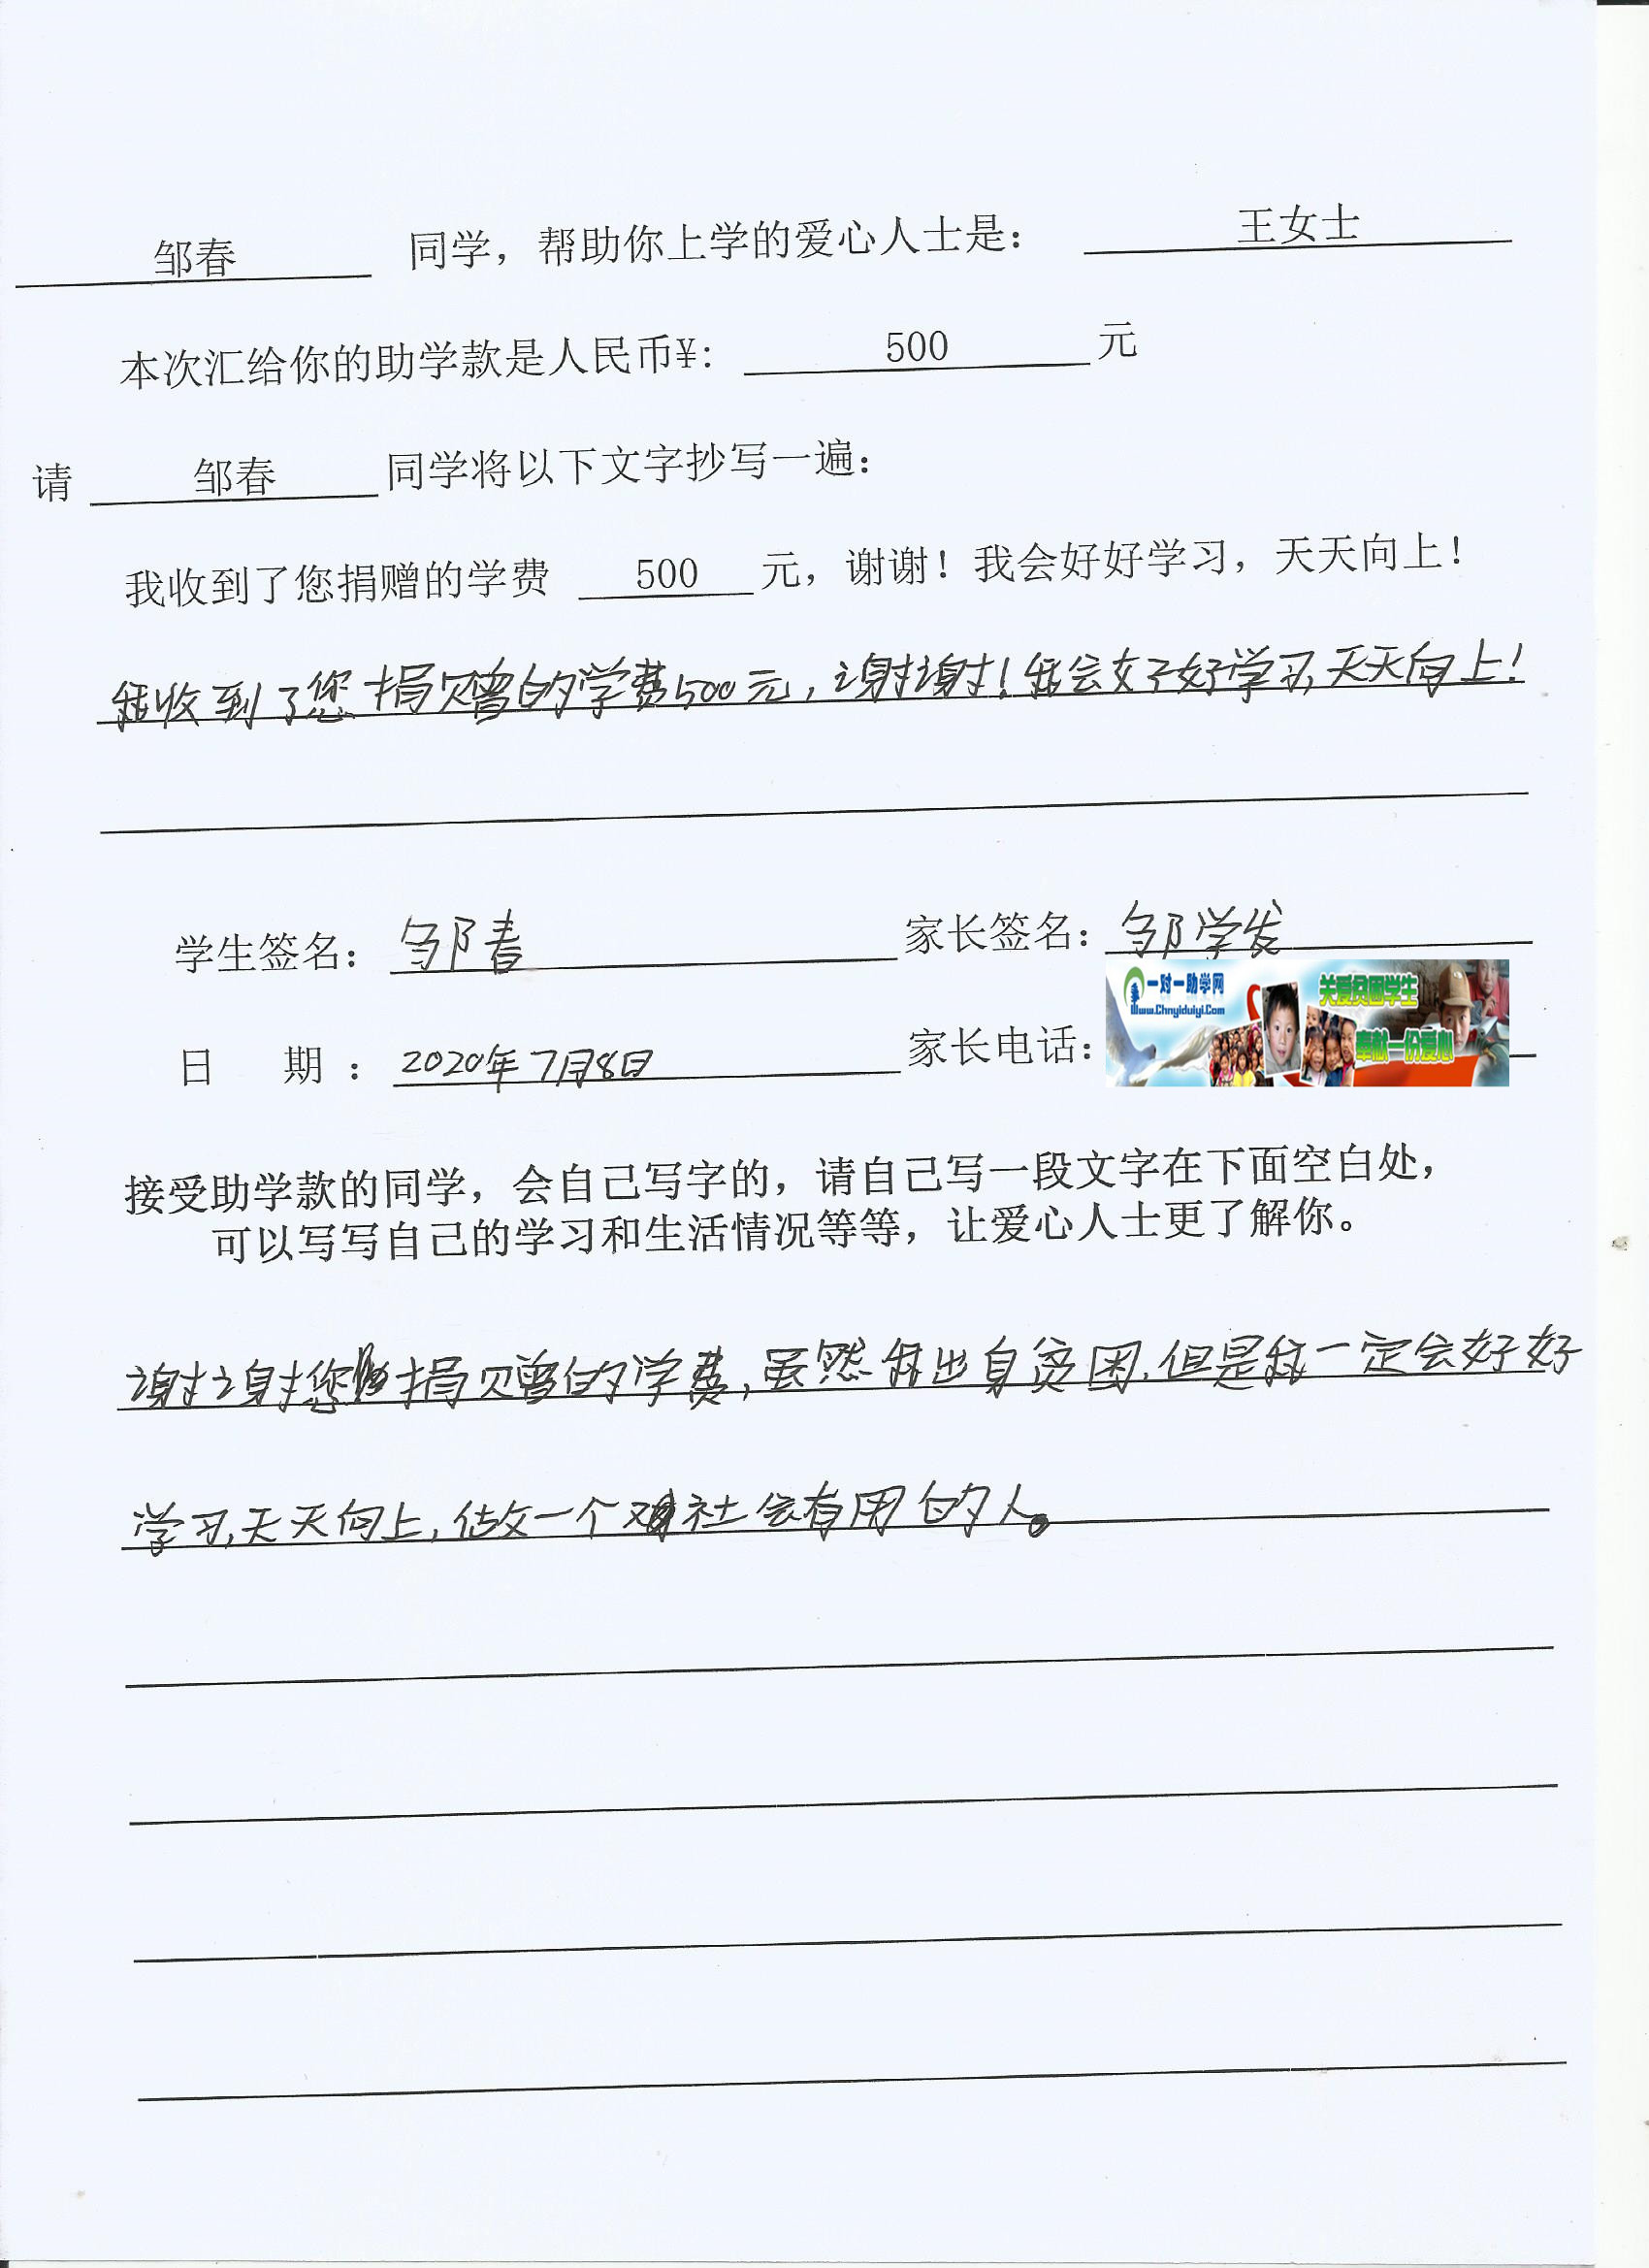 邹春 同学，帮助你上学的爱心人士是： 王女士
本次汇给你的助学款是人民币¥： 500 元
请 邹春 同学将以下文字抄写一遍：
我收到了您捐赠的学费 500 元，谢谢！我会好好学习，天天向上！
我收到了您捐赠的学费500元，谢谢！我会好好学习，天天向上！
学生签名： 邹春 家长签名： 邹学发
一对一助学网 关爱贫困学生
Www.Chnyiduiyi.Com
日 期 ： 2020年7月8日 家长电话： 奉献一份爱心
接受助学款的同学，会自己写字的，请自己写一段文字在下面空白处，
可以写写自己的学习和生活情况等等，让爱心人士更了解你。
谢谢您捐赠的学费，虽然我出身贫困，但是我一定会好好
学习，天天向上，做一个对社会有用的人。